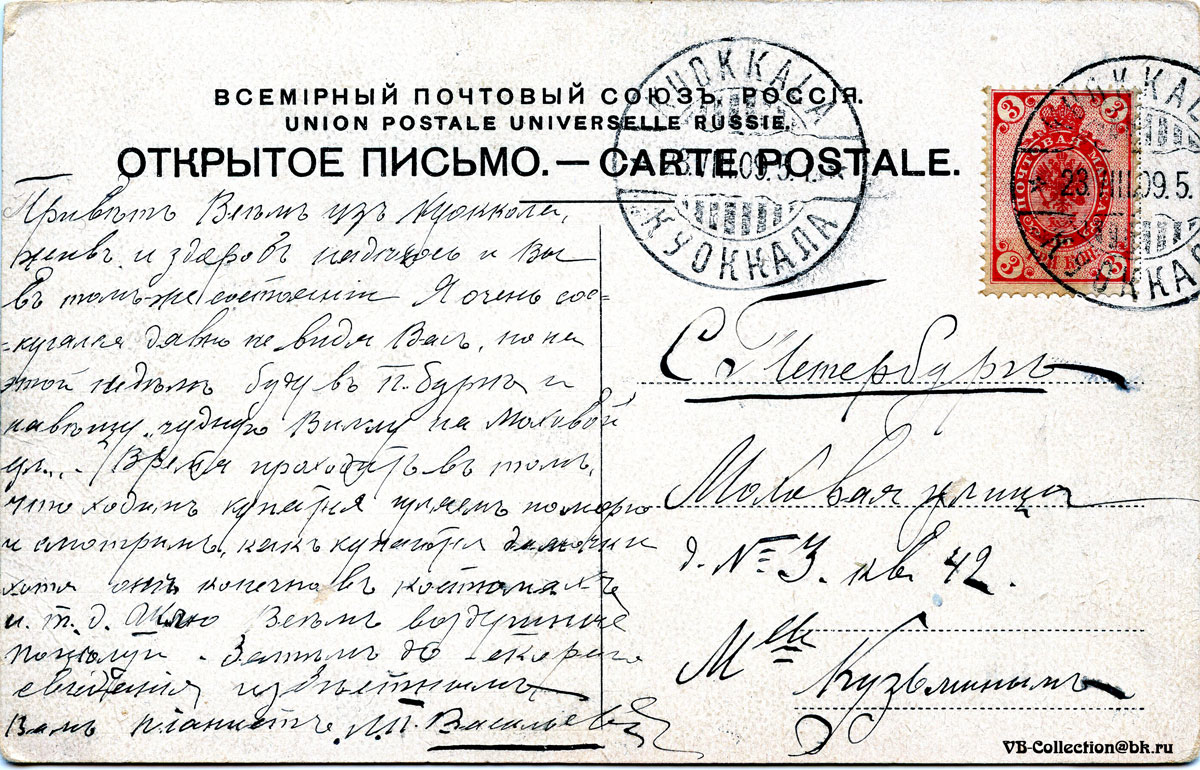 ВСЕМІРНЫЙ ПОЧТОВЫЙ СОЮЗЪ. РОССІЯ.
UNION POSTALE UNIVERSELLE RUSSIE.
ОТКРЫТОЕ ПИСЬМО. — CARTE POSTALE.
KUOKKALA
23.VIII.09.5
КУОККАЛА
3 3
ПОЧТОВАЯ МАРКА
3 3
KUOKKALA
23. III.09.5
Привѣтъ Всѣмъ изъ Куоккола,
живъ и здоровъ надѣюсь и Вы
въ томъ же состояніи Я очень соо-
=кучался давно не видя Васъ, но на
этой недѣлѣ буду въ П. бургѣ и
навѣщу „чудную Виллу на Моховой
ул... Время проходитъ въ томъ,
что ходимъ купатся гуляемъ по морю
и смотримъ, какъ купаются дамочки
хотя онѣ конечно въ костюмахъ
и. т. д. Шлю Всѣмъ воздушные
поцѣлуи. Затѣмъ до скораго
свиданія извѣстный
Вамъ піанистъ. Васильевъ
С. Петербургъ
Моховая улица
д. № 3. кв. 42.
M lle
Кузьминымъ
VB-Collection@bk.ru